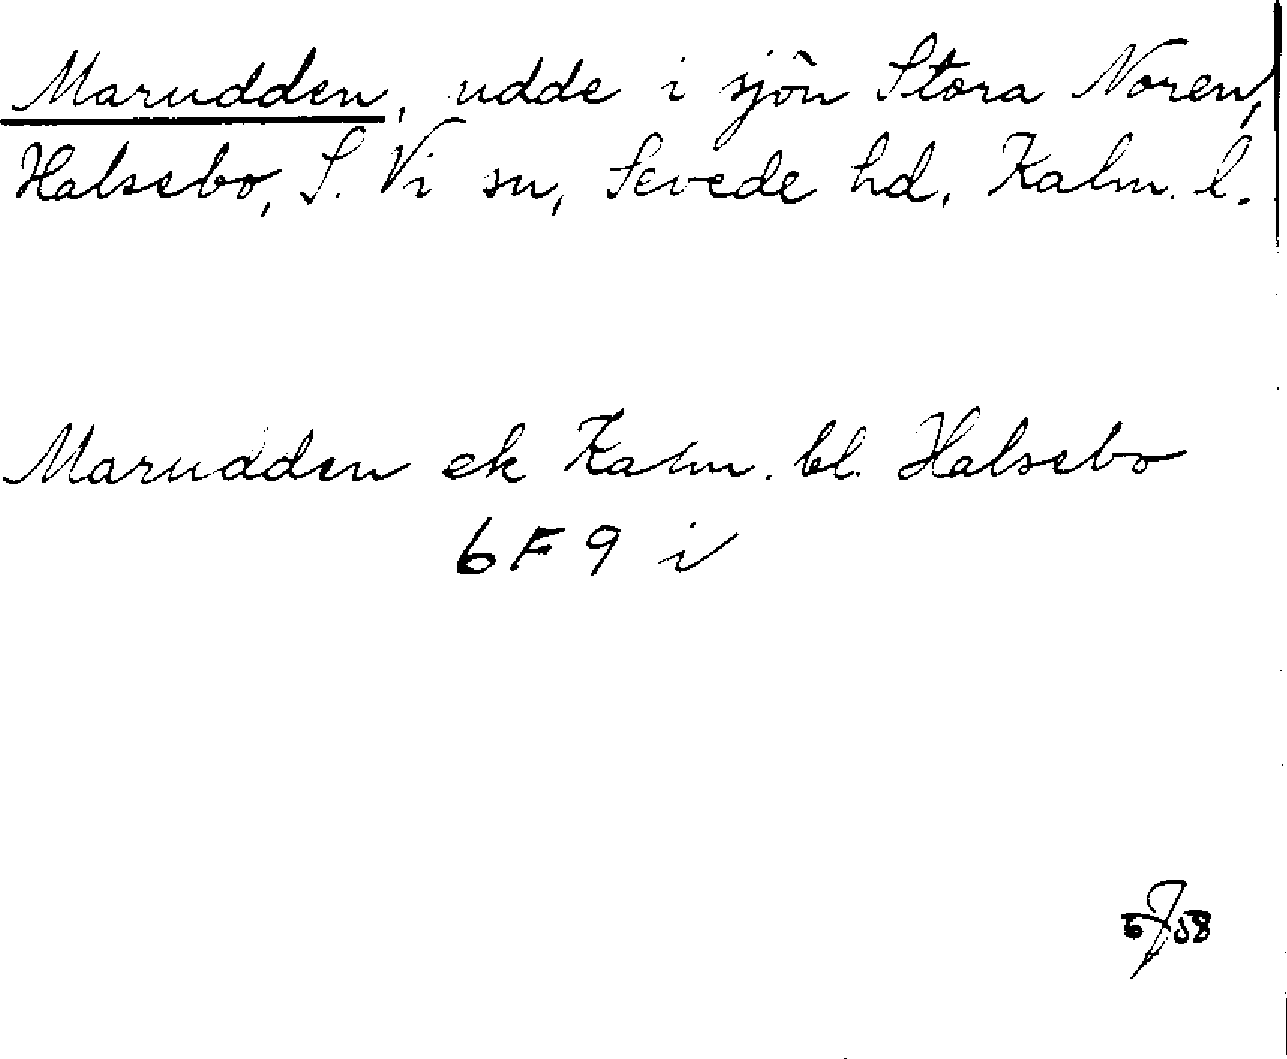 Marudden, udde i sjön Stora Noren,
Halsebo, S. Vi sn, Sevede hd, Kalm. l.
Marudden ek Kalm. bl. Halsebo
6F 9 i